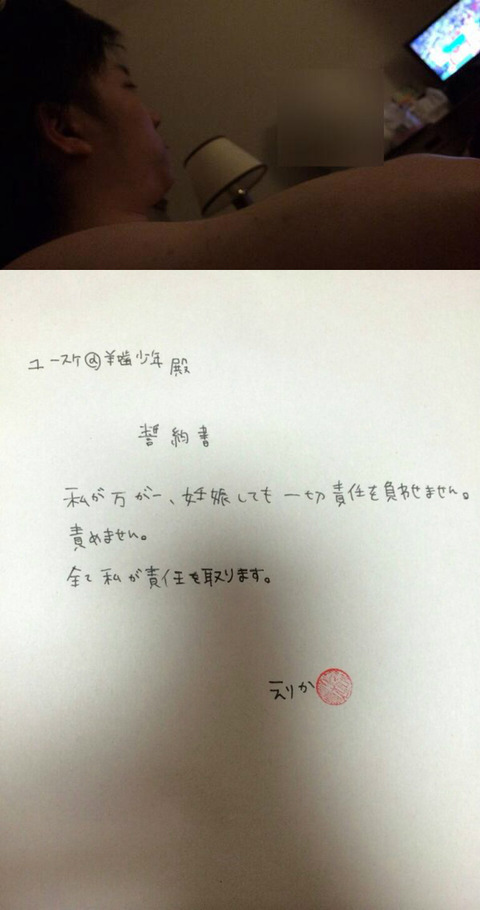 ユースケ@羊歯少年 殿
誓約書
私が万が一、妊娠しても一切責任を負わせません。
責めません。
全て私が責任を取ります。
えりか